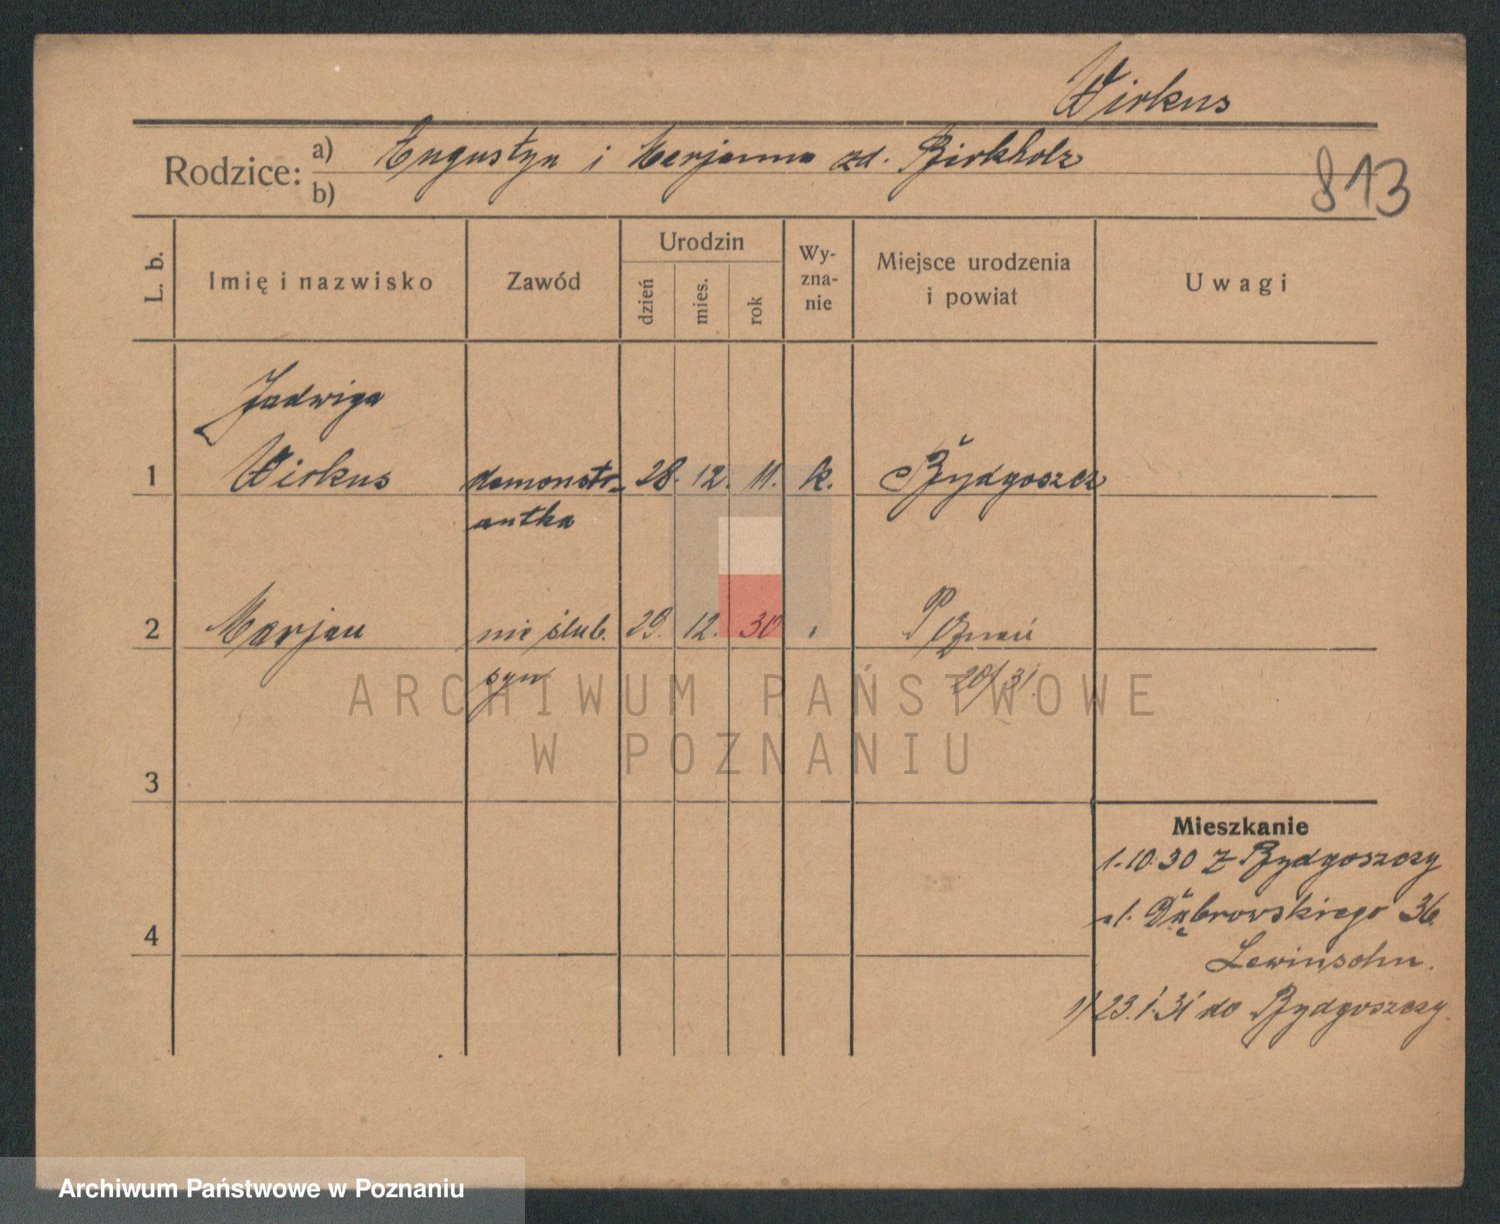 Wirkus
Rodzice: a) Augustyn i Marjanna zd. Birkholz
b)
813
L. b. Imię i nazwisko Zawód Urodzin dzień mies. rok Wy-zna-nie Miejsce urodzenia i powiat Uwagi
Jadwiga
1 Wirkus demonstr- 28. 12. 11. k. Bydgoszcz
antka
2 Marjan nie ślub. 29. 12. 30 Poznań
syn 20/31.
3
4
Mieszkanie
1.10.30 z Bydgoszczy
ul. Dąbrowskiego 36.
Lewinsohn.
1) 23.1.31 do Bydgoszczy.
ARCHIWUM PAŃSTWOWE
W POZNANIU
Archiwum Państwowe w Poznaniu